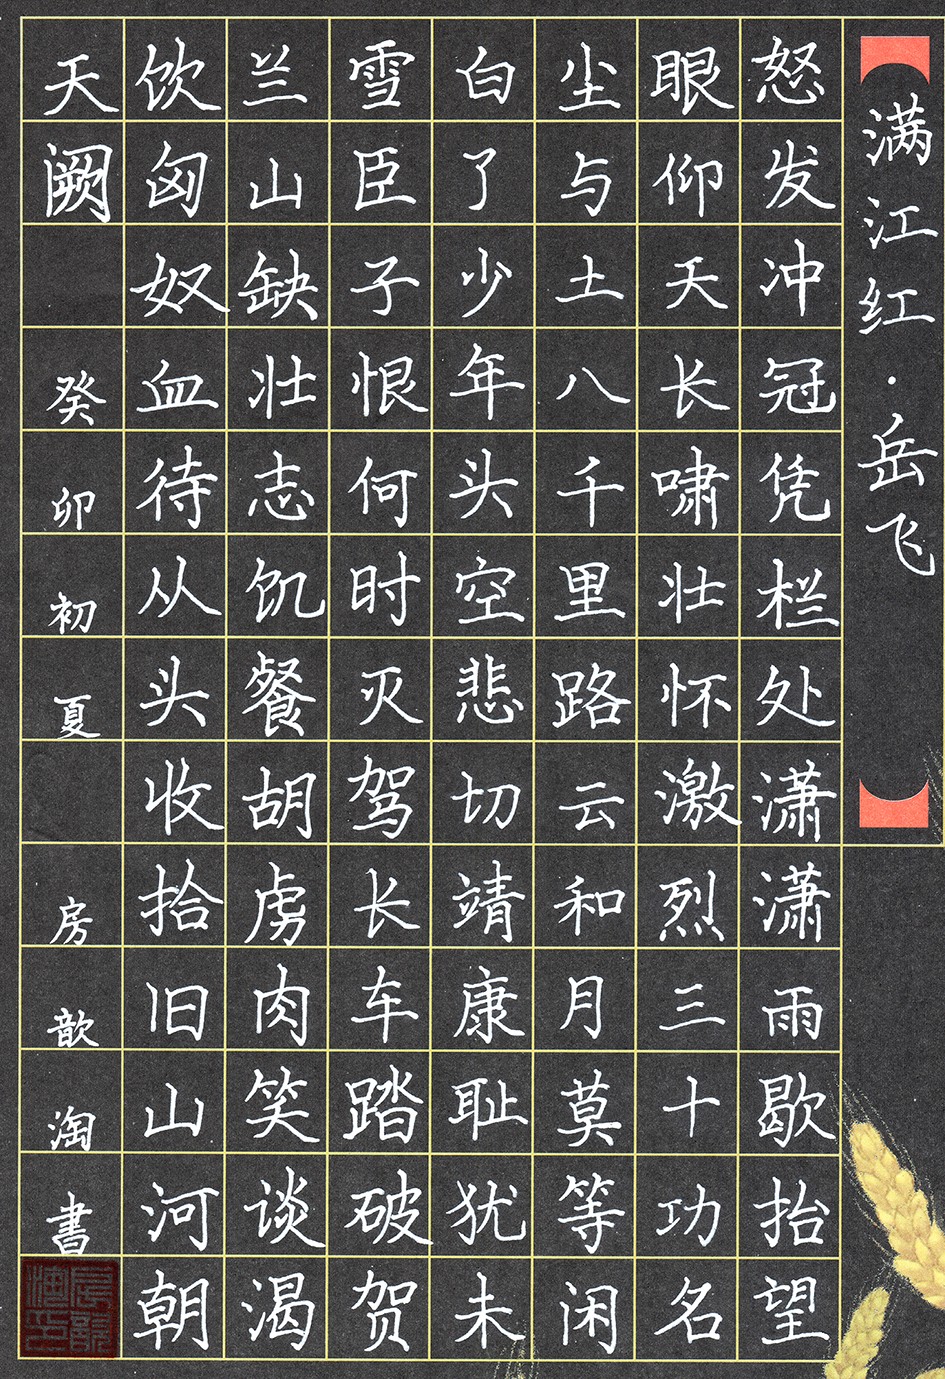 满江红·岳飞
怒发冲冠凭栏处潇潇雨歇抬望
眼仰天长啸壮怀激烈三十功名
尘与土八千里路云和月莫等闲
白了少年头空悲切靖康耻犹未
雪臣子恨何时灭驾长车踏破贺
兰山缺壮志饥餐胡虏肉笑谈渴
饮匈奴血待从头收拾旧山河朝
天阙 癸卯初夏 房歆淘書